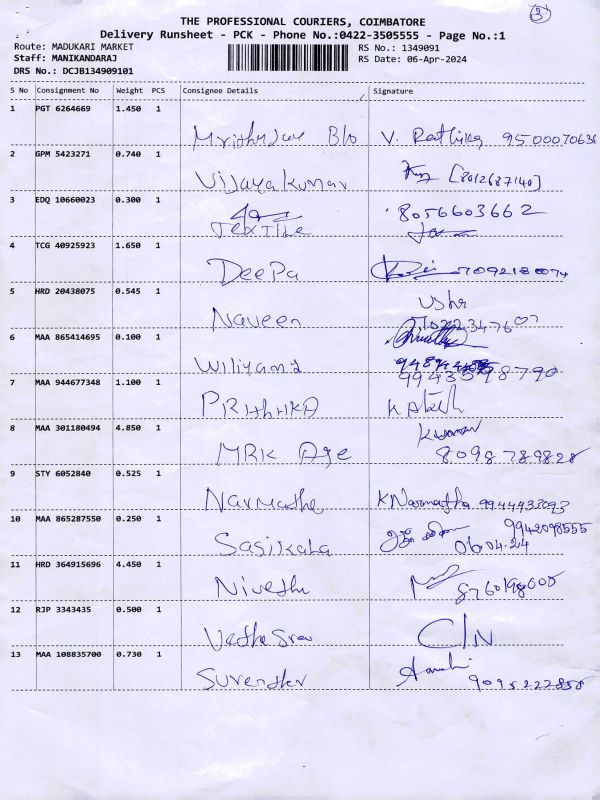 5
THE PROFESSIONAL COURIERS, COIMBATORE
Delivery Runsheet - PCK - Phone No.:0422-3505555 - Page No.:1
Route: MADUKARI MARKET RS No.: 1349091
Staff: MANIKANDARAJ RS Date: 06-Apr-2024
DRS No.: DCJB134909101
S No Consignment No Weight PCS Consignee Details Signature
1 PGT 6264669 1.450 1
V. Rathika
2 GPM 5423271 0.740 1
Vijayakumar [8012687140]
3 EDQ 10660023 0.300 1
Textile 8056603662
4 TCG 40925923 1.650 1
DeePa 7092180074
5 HRD 20438075 0.545 1
Naveen Usha
6 MAA 865414695 0.100 1
7 MAA 944677348 1.100 1
PRithikA
8 MAA 301180494 4.850 1
MRK Age Kumar 8098789828
9 STY 6052840 0.525 1
Narmadhe K Narmatha
10 MAA 865287550 0.250 1
Sasikala 9942098555
06.04.24
11 HRD 364915696 4.450 1
Nivethi
12 RJP 3343435 0.500 1
C/N
13 MAA 108835700 0.730 1
Surendar 9095222858